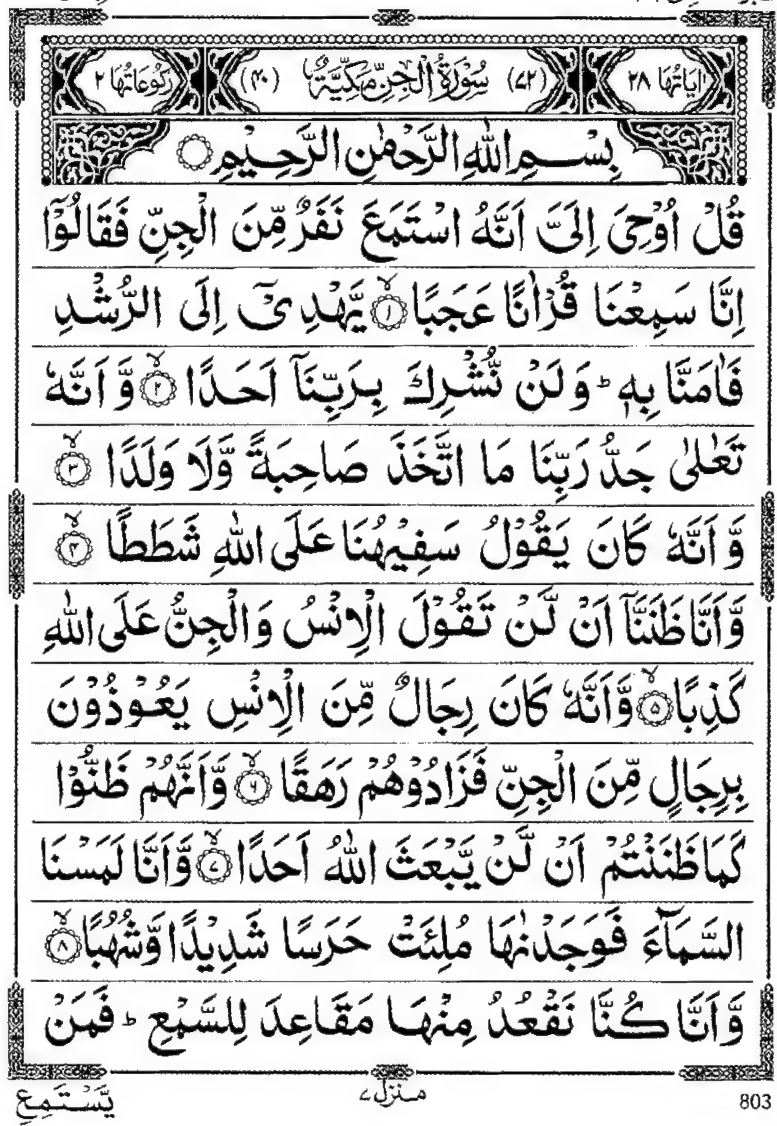 اٰيَاتُهَا ٢٨ (٧٢) سُوْرَةُ الْجِنِّ مَكِّيَّةٌ (٤٠) رُكُوْعَاتُهَا ٢
بِسْمِ اللّٰهِ الرَّحْمٰنِ الرَّحِيْمِ
قُلْ اُوْحِىَ اِلَىَّ اَنَّهُ اسْتَمَعَ نَفَرٌ مِّنَ الْجِنِّ فَقَالُوْٓا
اِنَّا سَمِعْنَا قُرْاٰنًا عَجَبًا ۙ﴿۱﴾ يَّهْدِىْٓ اِلَى الرُّشْدِ
فَاٰمَنَّا بِهٖ ؕ وَلَنْ نُّشْرِكَ بِرَبِّنَاۤ اَحَدًا ۙ﴿۲﴾ وَّاَنَّهٗ
تَعٰلٰى جَدُّ رَبِّنَا مَا اتَّخَذَ صَاحِبَةً وَّلَا وَلَدًا ۙ﴿۳﴾
وَّاَنَّهٗ كَانَ يَقُوْلُ سَفِيْهُنَا عَلَى اللّٰهِ شَطَطًا ۙ﴿۴﴾
وَّاَنَّا ظَنَنَّاۤ اَنْ لَّنْ تَقُوْلَ الْاِنْسُ وَالْجِنُّ عَلَى اللّٰهِ
كَذِبًا ۙ﴿۵﴾ وَّاَنَّهٗ كَانَ رِجَالٌ مِّنَ الْاِنْسِ يَعُوْذُوْنَ
بِرِجَالٍ مِّنَ الْجِنِّ فَزَادُوْهُمْ رَهَقًا ۙ﴿۶﴾ وَّاَنَّهُمْ ظَنُّوْا
كَمَا ظَنَنْتُمْ اَنْ لَّنْ يَّبْعَثَ اللّٰهُ اَحَدًا ۙ﴿۷﴾ وَّاَنَّا لَمَسْنَا
السَّمَآءَ فَوَجَدْنٰهَا مُلِئَتْ حَرَسًا شَدِيْدًا وَّشُهُبًا ۙ﴿۸﴾
وَّاَنَّا كُنَّا نَقْعُدُ مِنْهَا مَقَاعِدَ لِلسَّمْعِ ؕ فَمَنْ
يَّسْتَمِعِ
منزل ٧
803